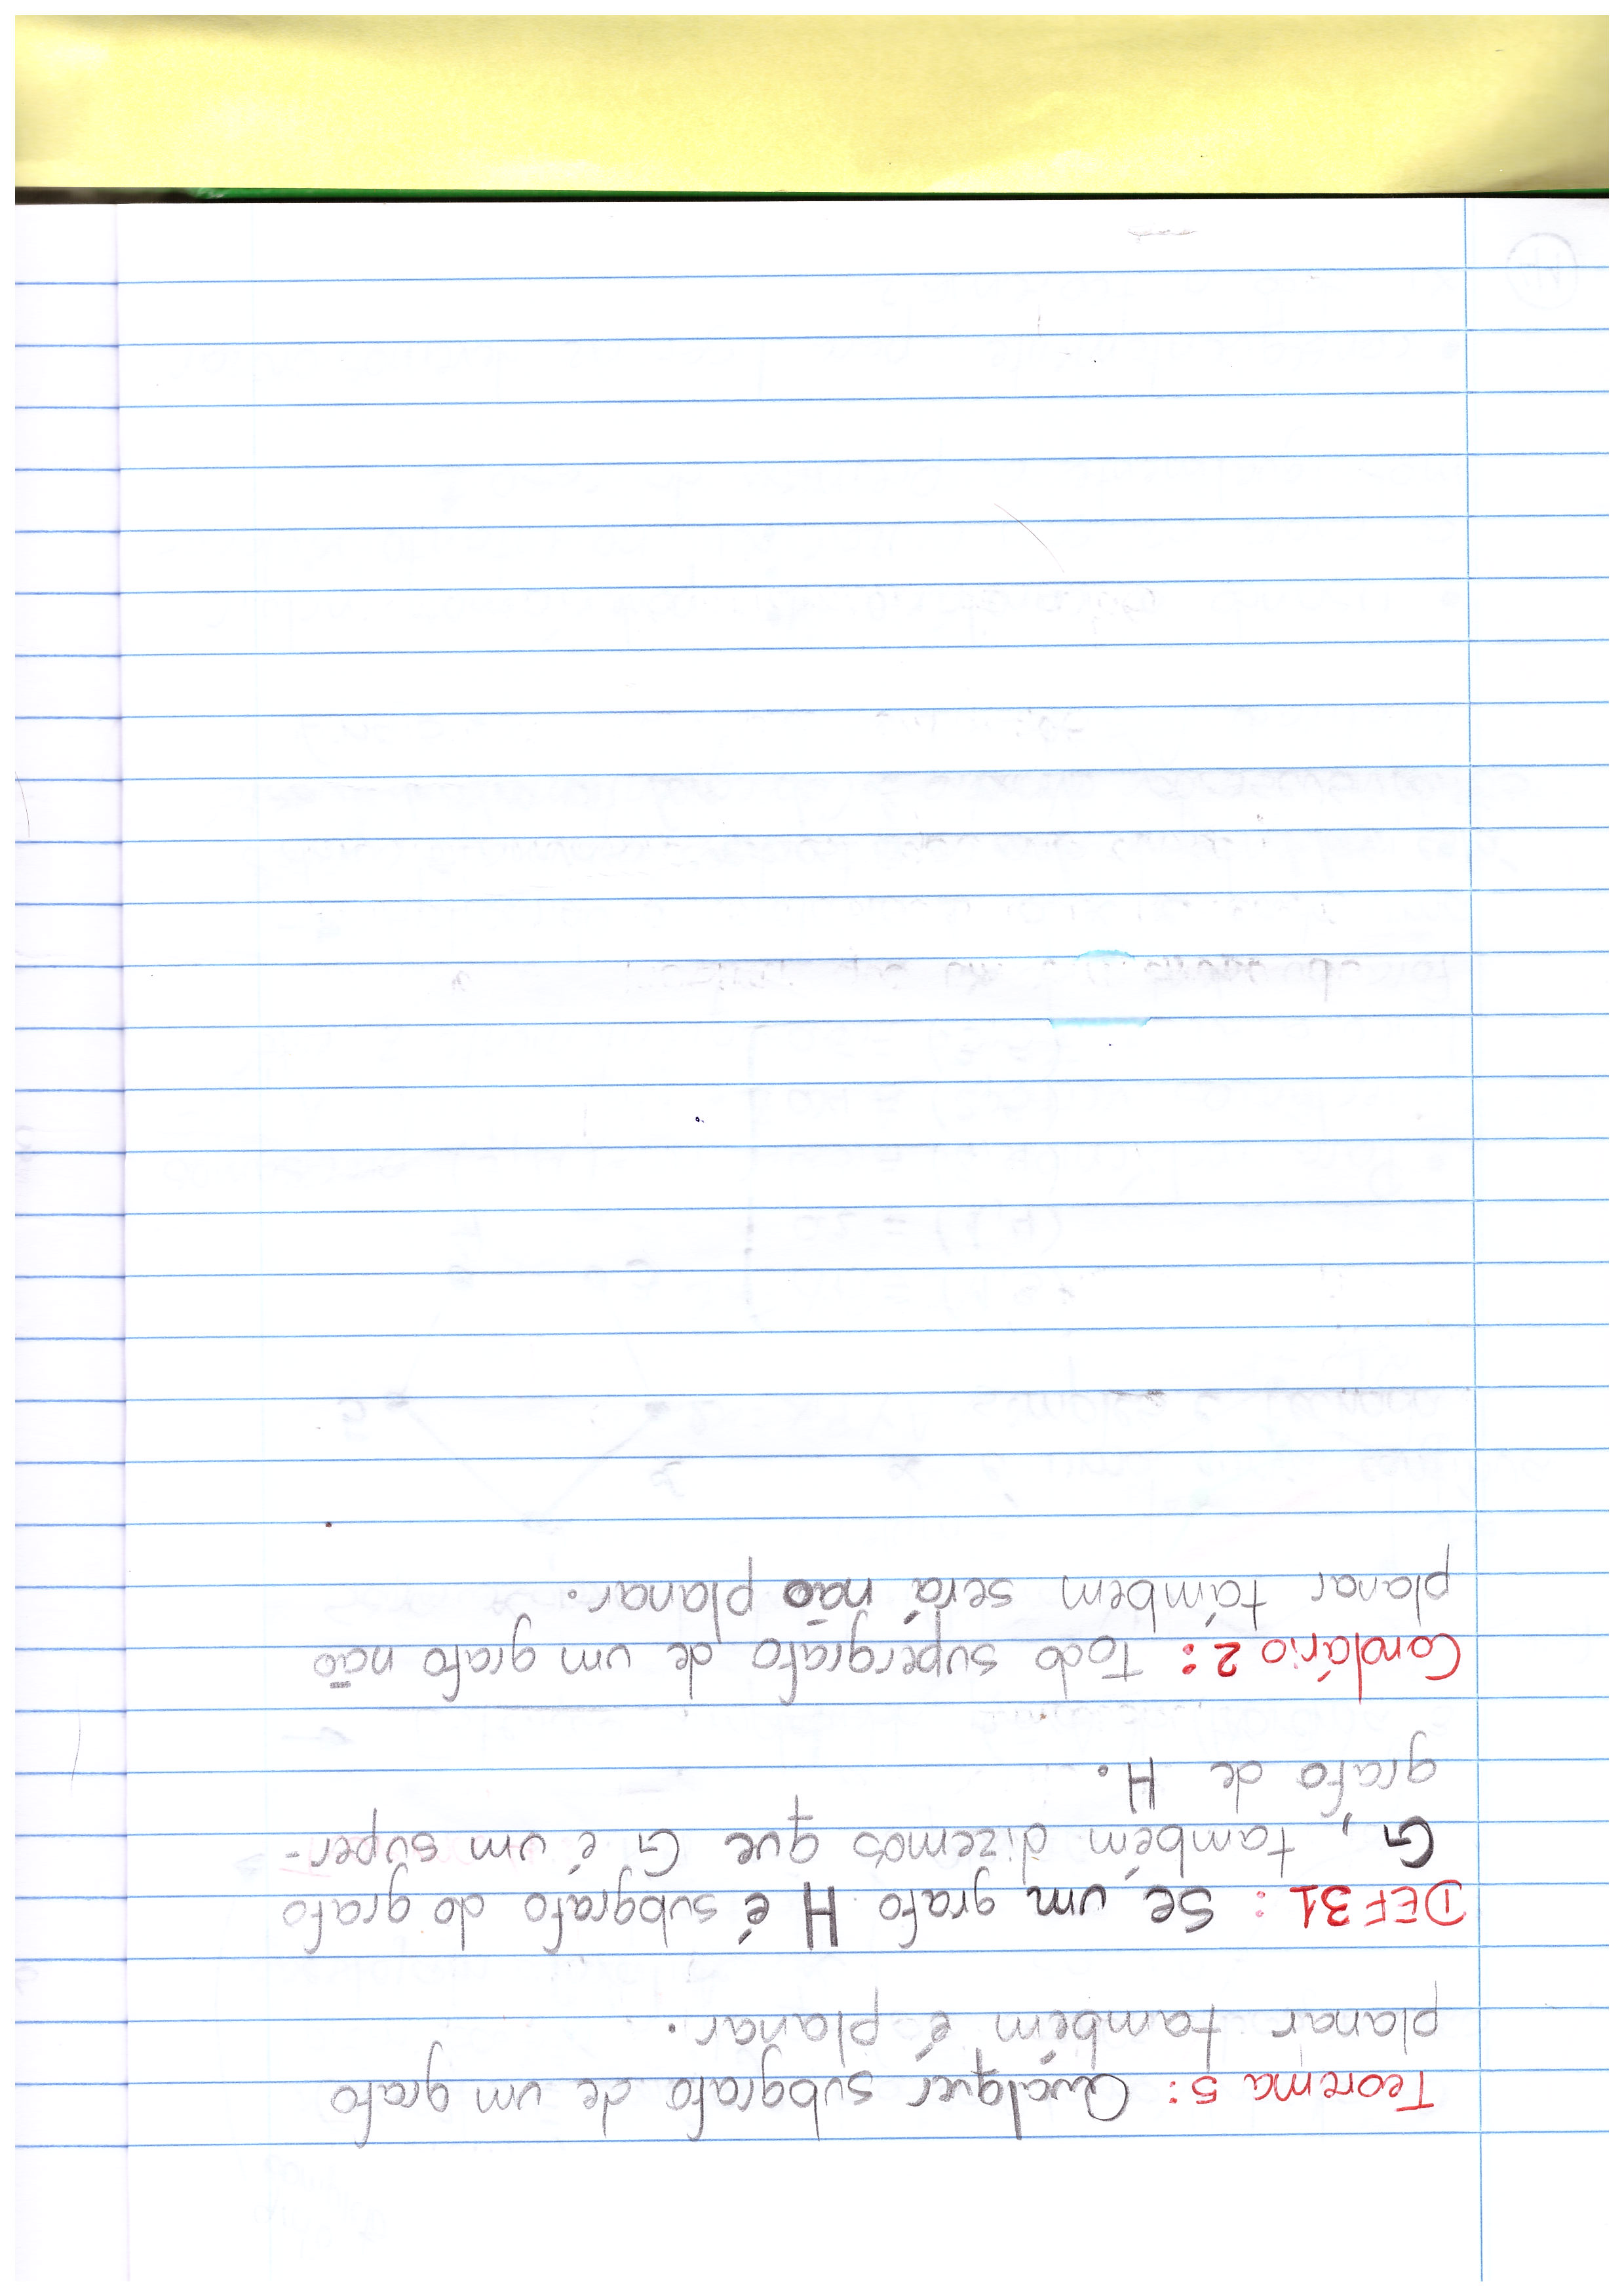 Teorema 5: Qualquer subgrafo de um grafo
planar também é planar.
DEF 31: Se um grafo H é subgrafo do grafo
G, também dizemos que G é um super-
grafo de H.
Corolário 2: Todo supergrafo de um grafo não
planar támbem será não planar.